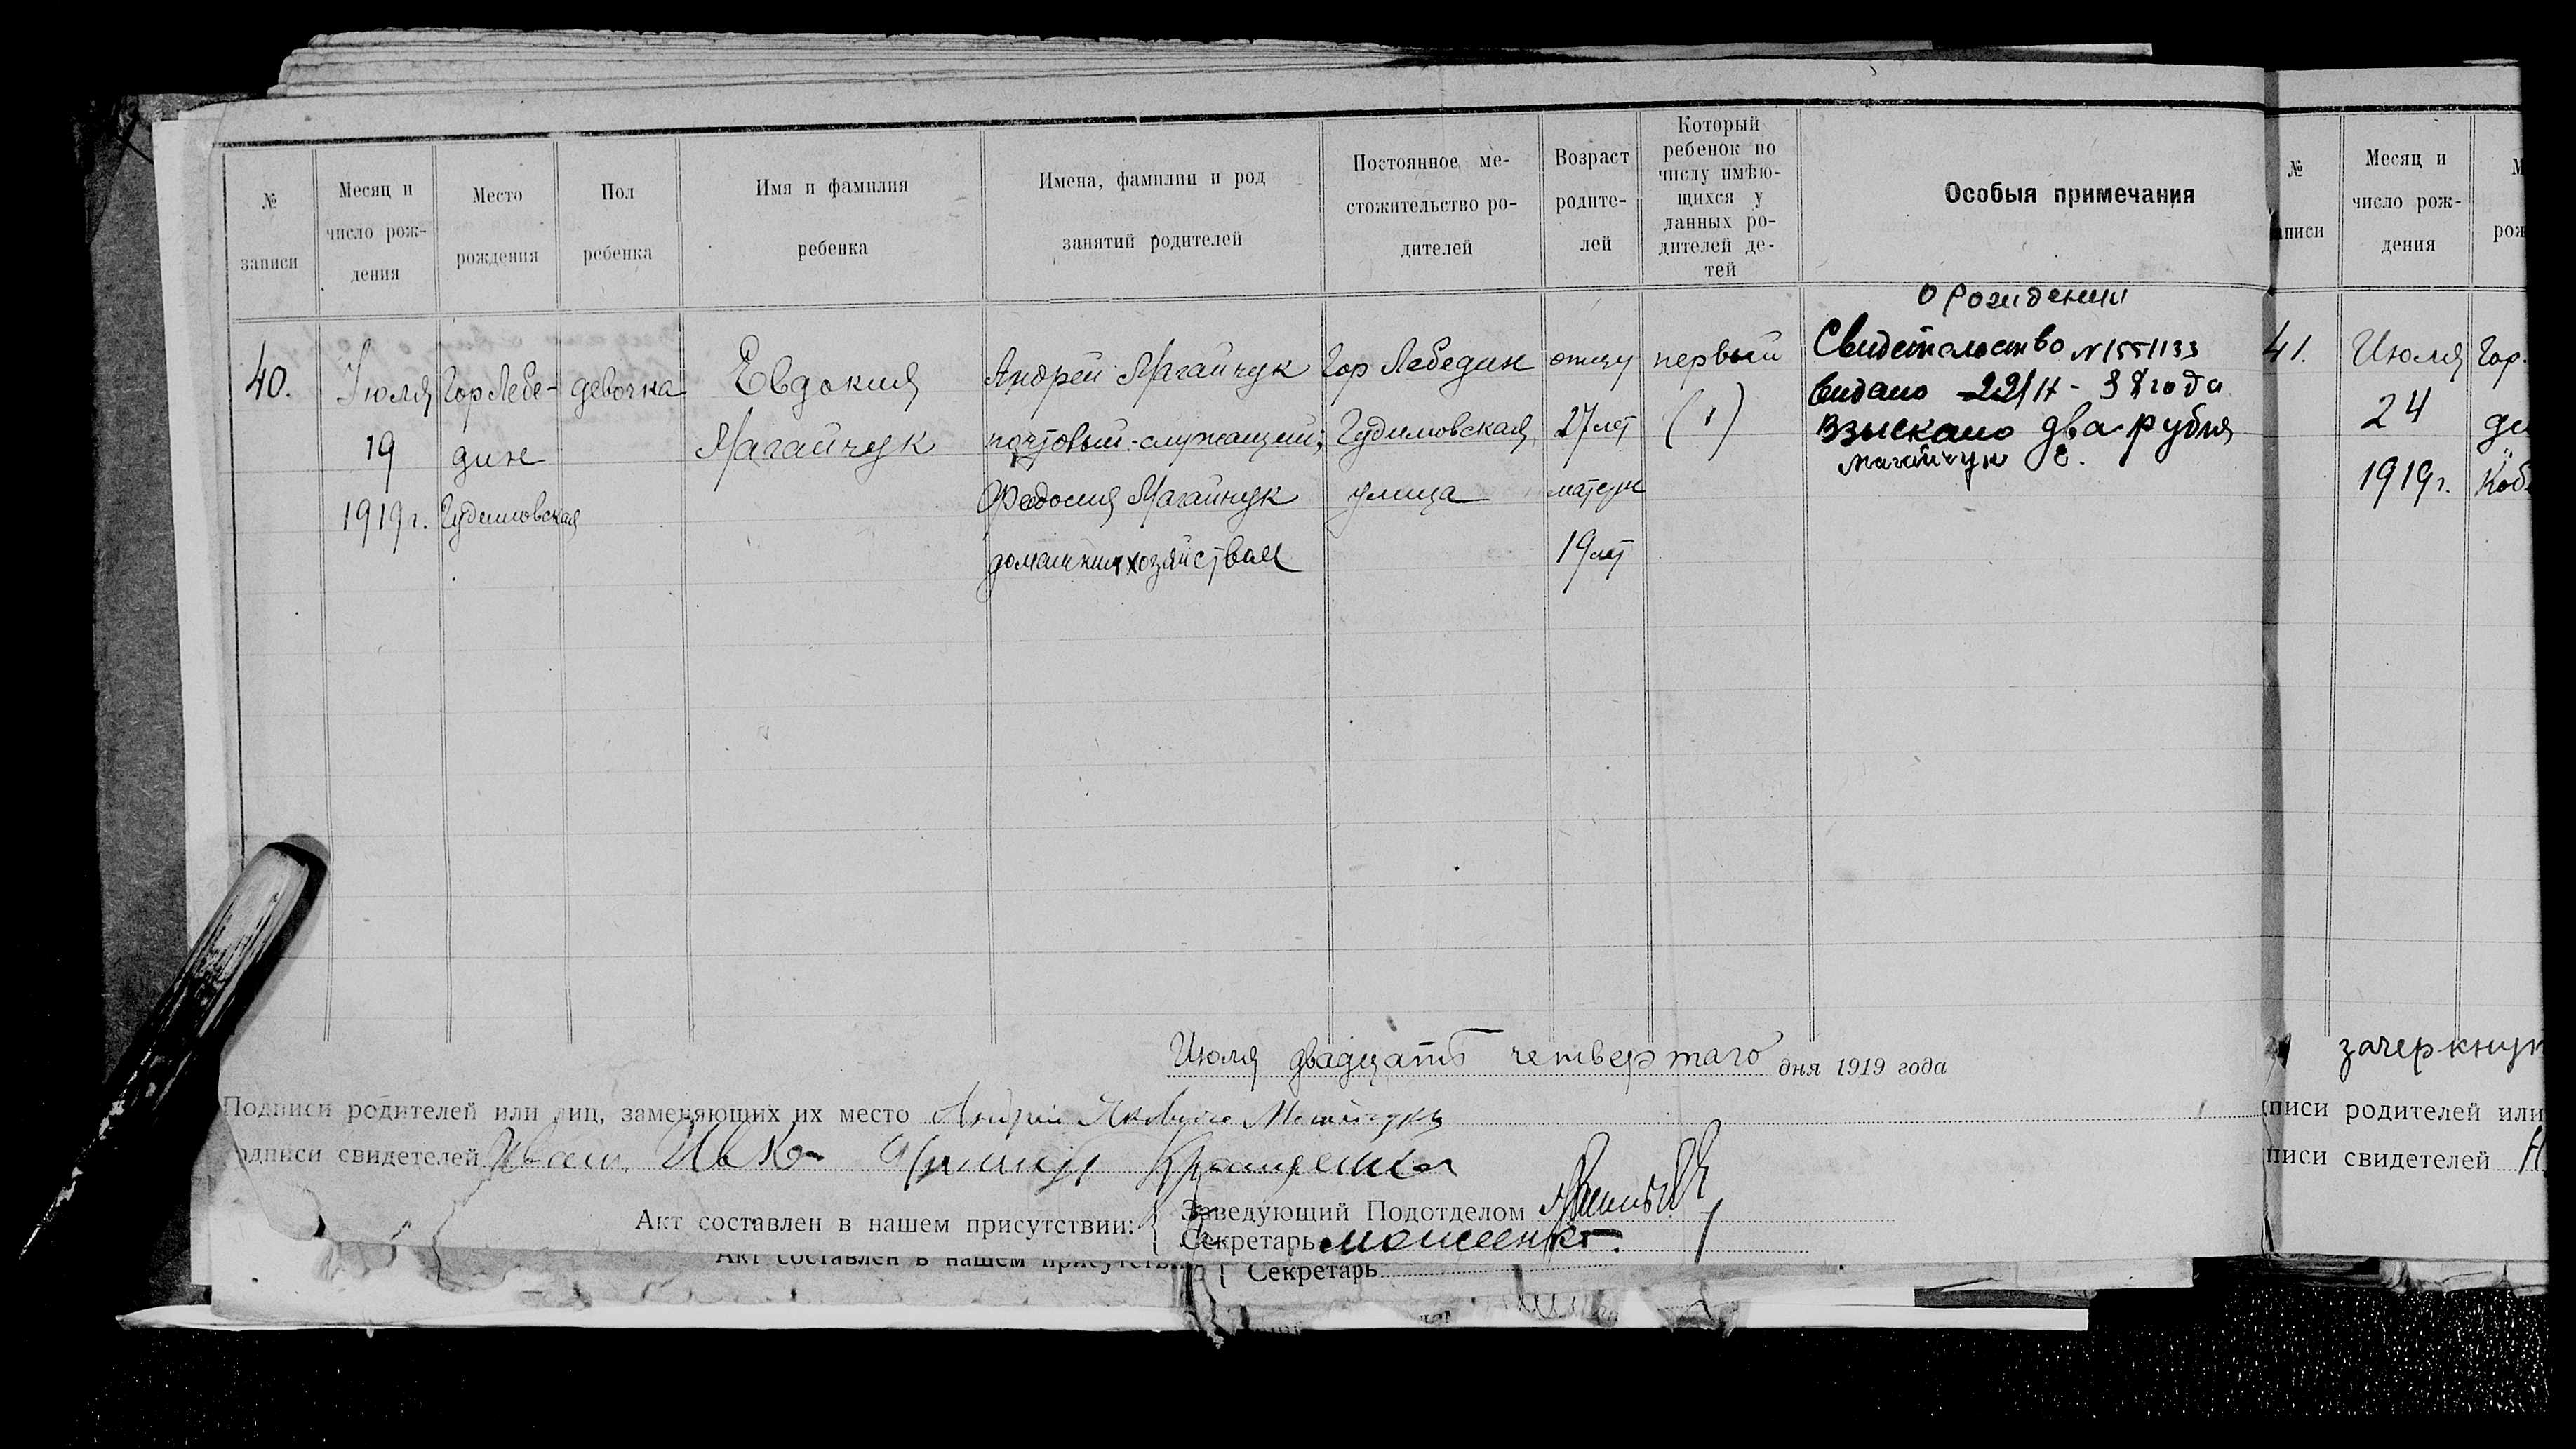 № записи
Месяц и число рож-дения
Место рождения
Пол ребенка
Имя и фамилия ребенка
Имена, фамилии и род занятий родителей
Постоянное ме-стожительство ро-дителей
Возраст родите-лей
Который ребенок по числу имѣю-щихся у данных ро-дителей де-тей
Особыя примечания
40.
Июля
19
1919 г.
Гор Лебе-
дин
Гудимовская
девочка
Евдокия
Магайчук
Андрей Магайчук
почтовый-служащий;
Федосия Магайчук
домашним хозяйством
Гор Лебедин
Гудимовская
улица
отцу
27 лет
матери
19 лет
первый
(1)
о рождении
Свидетельство N 1551133
видано 22/II - 38 года
Взыскано два рубля
Магайчук Е.
Июля двадцать четвертаго дня 1919 года
Подписи родителей или лиц, заменяющих их место Андрей Магайчук
одписи свидетелей Иван
Акт составлен в нашем присутствии:
Заведующий Подотделом
Секретарь
Акт составлен в нашем присутств
Секретарь
№
аписи
Месяц и
число рож-
дения
М
рож
41.
Июля
24
1919 г.
Гор.
ди
Коб
зачеркнут
писи родителей или
писи свидетелей